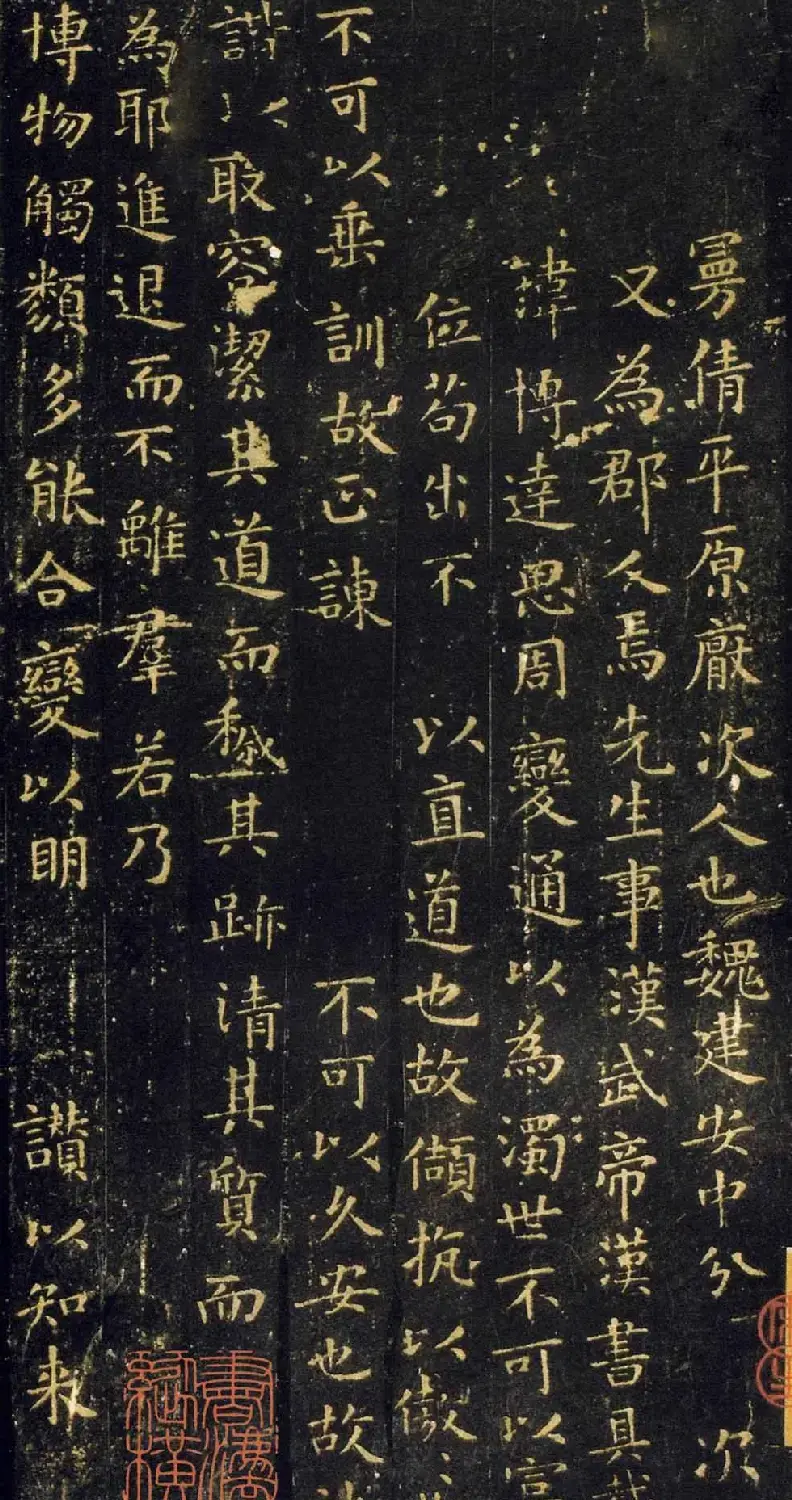 曼倩平原厭次人也魏建安中分 次
又為郡人焉先生事漢武帝漢書具載
瑋博達思周變通以為濁世不可以富
位苟出不 以直道也故頡抗以傲
不可以垂訓故正諫 不可以久安也故
詼以取容潔其道而穢其跡清其質而
為耶進退而不離羣若乃
博物觸類多能合變以明 讚以知来